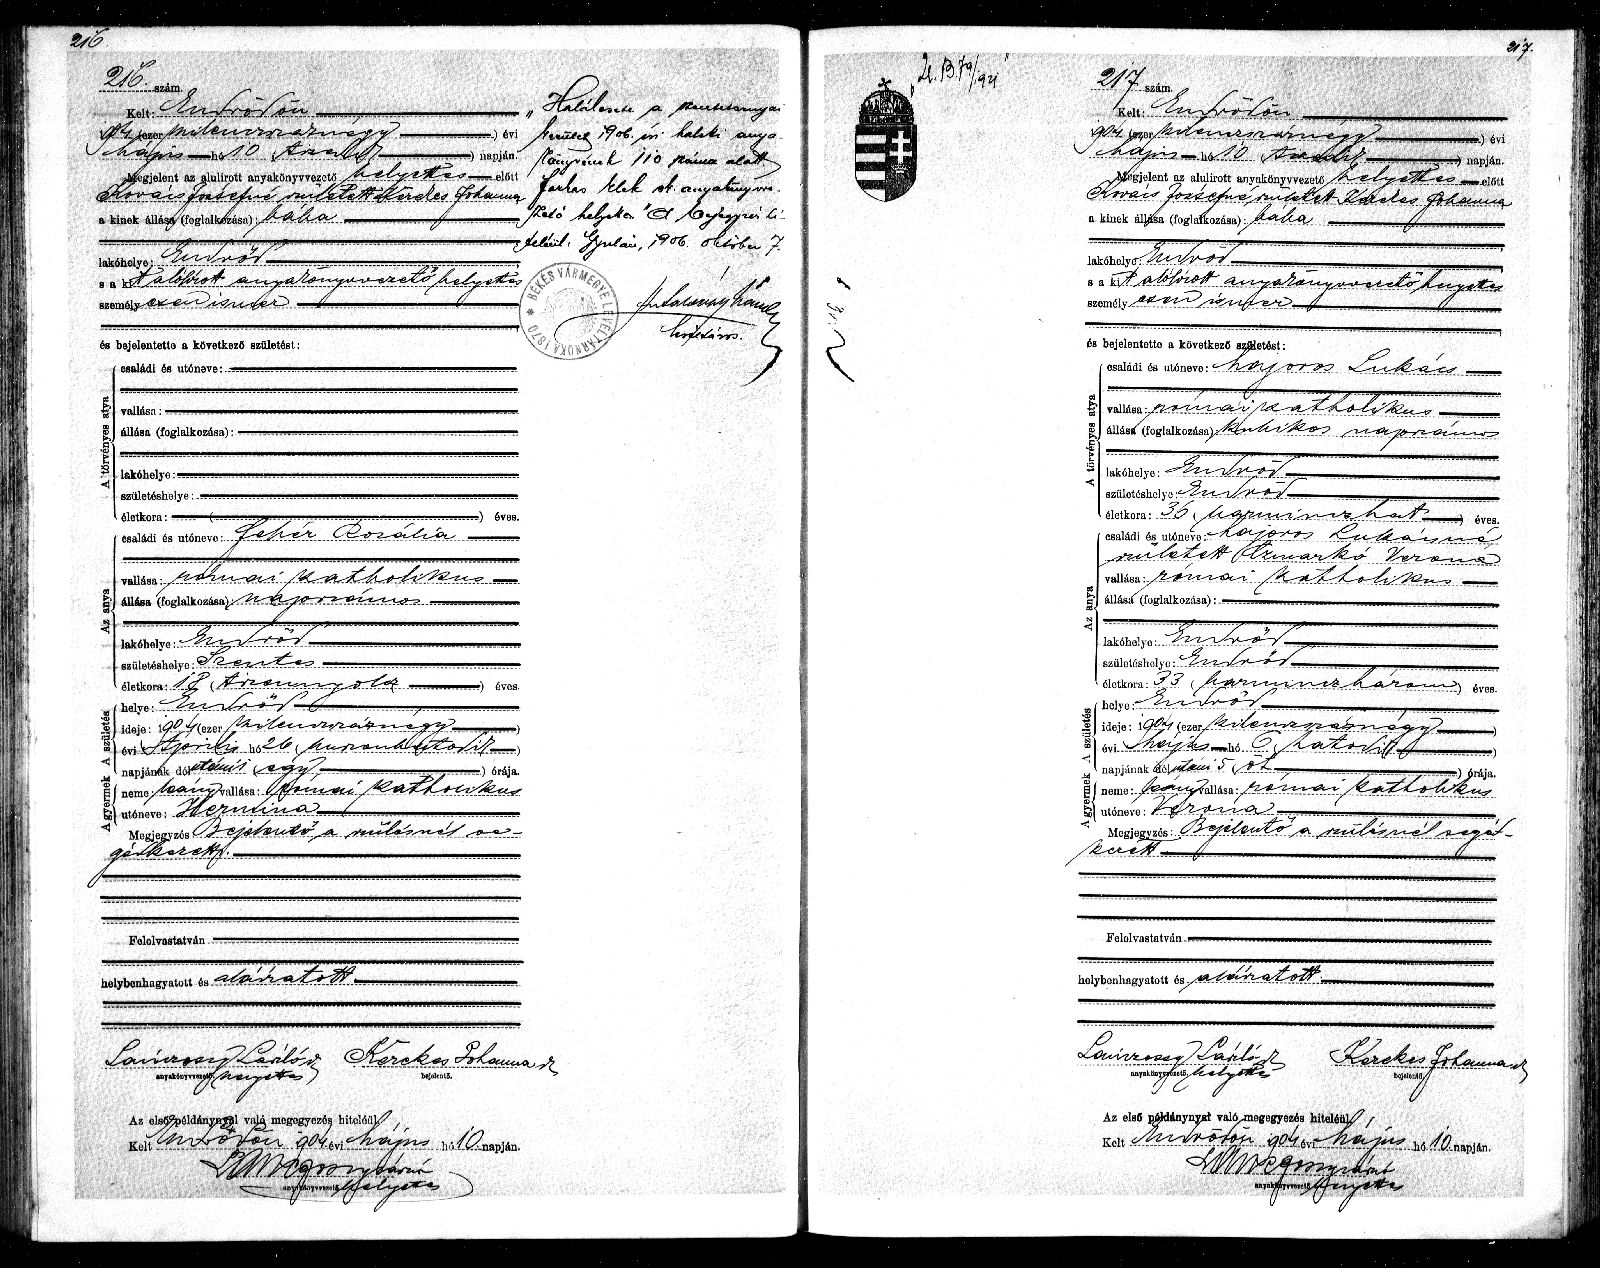 216.
216. szám.
Kelt: Endrődön
904 (ezer kilenczszáznégy) évi
május hó 10 (tizedik) napján.
Megjelent az alulirott anyakönyvvezető helyettes előtt
Kovács Józsefné született Kerekes Johanna
a kinek állása (foglalkozása): bába
lakóhelye: Endrőd
s a kit alólirott anyakönyvvezető helyettes
személyesen ismer
és bejelentette a következő születést:
A törvényes atya
családi és utóneve:
vallása:
állása (foglalkozása):
lakóhelye:
születéshelye:
életkora: ( ) éves.
Az anya
családi és utóneve: Fehér Rozália
vallása: római katholikus
állása (foglalkozása): napszámos
lakóhelye: Endrőd
születéshelye: Szentes
életkora: 18 (tizennyolcz) éves.
A születés
helye: Endrőd
ideje: 1904 (ezer kilenczszáznégy
évi április hó 26 huszonhatodik)
napjának délutáni 1 (egy) órája.
A gyermek
neme: leány vallása: római katholikus
utóneve: Hermina
Megjegyzés: Bejelentő a szülésnél se-
gédkezett.
Felolvastatván
helybenhagyatott és aláiratott
Kerekes Johanna
anyakönyvvezető helyettes bejelentő.
Az első példánynyal való megegyezés hiteléül.
Kelt Endrődön 904 évi május hó 10 napján.
anyakönyvvezető helyettes
„Halálesete a
kerület 1906. évi halotti anya-
könyvének 110 száma alatt
Gyulán, 1906. október 7.
* BÉKÉS VÁRMEGYE LEVÉLTÁRNOKA 1870
217.
217 szám.
Kelt: Endrődön
904 (ezer kilenczszáznégy) évi
május hó 10 (tizedik) napján.
Megjelent az alulirott anyakönyvvezető helyettes előtt
Kovács Józsefné született Kerekes Johanna
a kinek állása (foglalkozása): bába
lakóhelye: Endrőd
s a kit alólirott anyakönyvvezető helyettes
személyesen ismer
és bejelentette a következő születést:
A törvényes atya
családi és utóneve: Majoros Lukács
vallása: római katholikus
állása (foglalkozása): kubikos napszámos
lakóhelye: Endrőd
születéshelye: Endrőd
életkora: 36 (harminczhat) éves.
Az anya
családi és utóneve: Majoros Lukácsné
született Verona
vallása: római katholikus
állása (foglalkozása):
lakóhelye: Endrőd
születéshelye: Endrőd
életkora: 33 (harminczhárom) éves.
A születés
helye: Endrőd
ideje: 1904 (ezer kilenczszáznégy)
évi május hó 6 hatodik)
napjának délutáni 5 (öt) órája.
A gyermek
neme: leány vallása: római katholikus
utóneve: Verona
Megjegyzés: Bejelentő a szülésnél segéd-
kezett
Felolvastatván
helybenhagyatott és aláiratott
Kerekes Johanna
anyakönyvvezető helyettes bejelentő.
Az első példánynyal való megegyezés hiteléül.
Kelt Endrődön 904 évi május hó 10 napján.
anyakönyvvezető helyettes